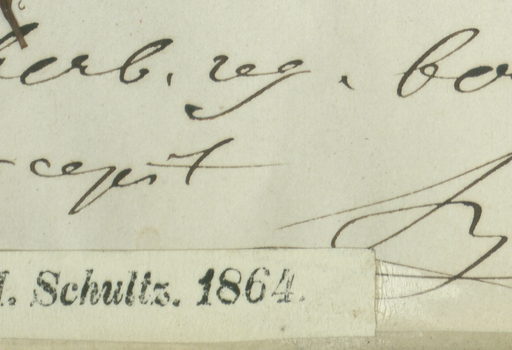 herb. reg. bo
cepit
Schultz. 1864.